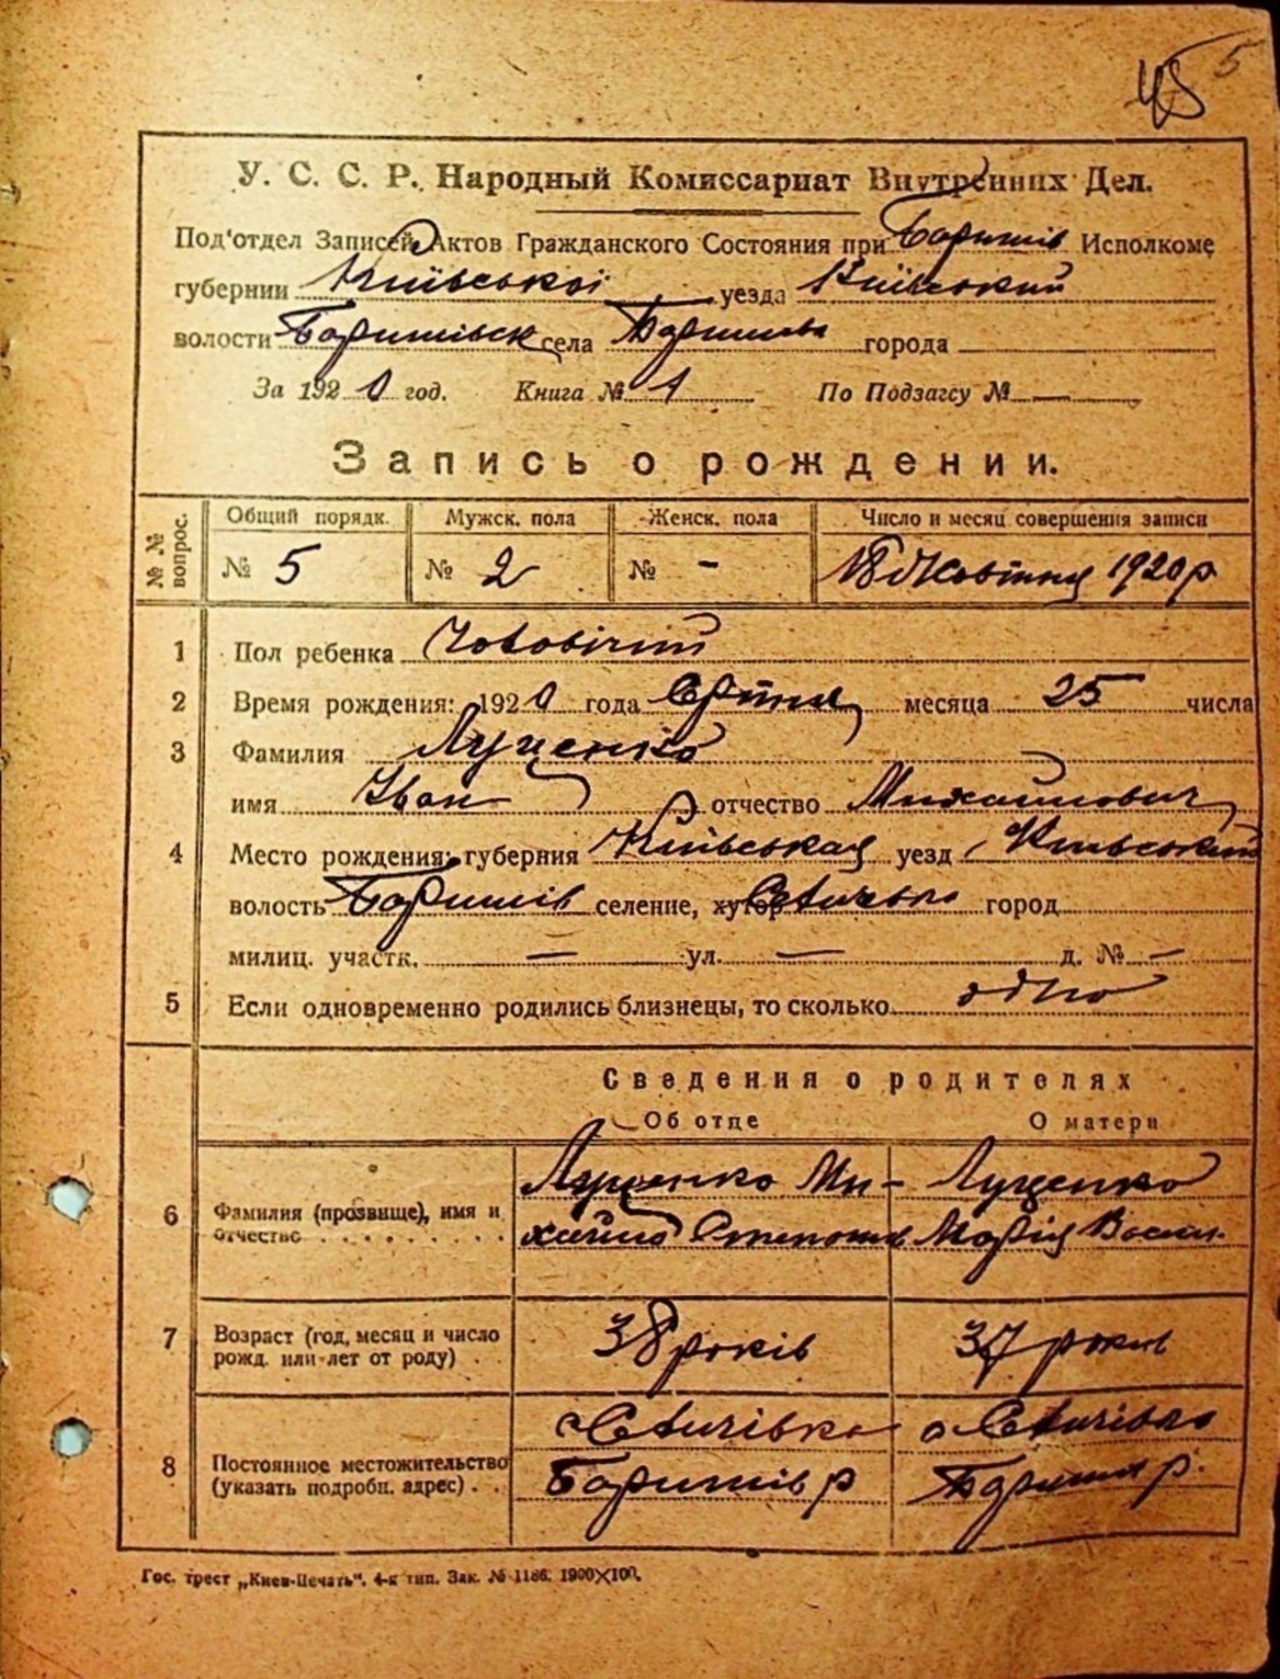 45 5
У. С. С. Р. Народный Комиссариат Внутренних Дел.
Под'отдел Записей Актов Гражданского Состояния при Баришів Исполкоме
губернии Київської уезда Київський
волости Баришівськ села Баришівка города
За 1920 год. Книга № 1 По Подзагсу № —
Запись о рождении.
№ № вопрос. Общий порядк. Мужск. пола Женск. пола Число и месяц совершения записи
№ 5 № 2 № - Жовтня 1920 р
1 Пол ребенка Чоловічий
2 Время рождения: 1920 года Серпня месяца 25 числа
3 Фамилия Луценко
имя Иван отчество Михайлович
4 Место рождения: губерния Київська уезд Київський
волость Баришів селение, хутор город
милиц. участк. — ул. — д. № —
5 Если одновременно родились близнецы, то сколько одно
Сведения о родителях
Об отце О матери
6 Фамилия (прозвище), имя и отчество Луценко Ми- Луценко
хайло Степанов Марія Васил.
7 Возраст (год, месяц и число рожд. или лет от роду) 38 років 37 років
8 Постоянное местожительство (указать подробн. адрес)
Баришів р Баришів р.
Гос. трест „Киев-Печать". 4-я тип. Зак. № 1186. 1900×100.